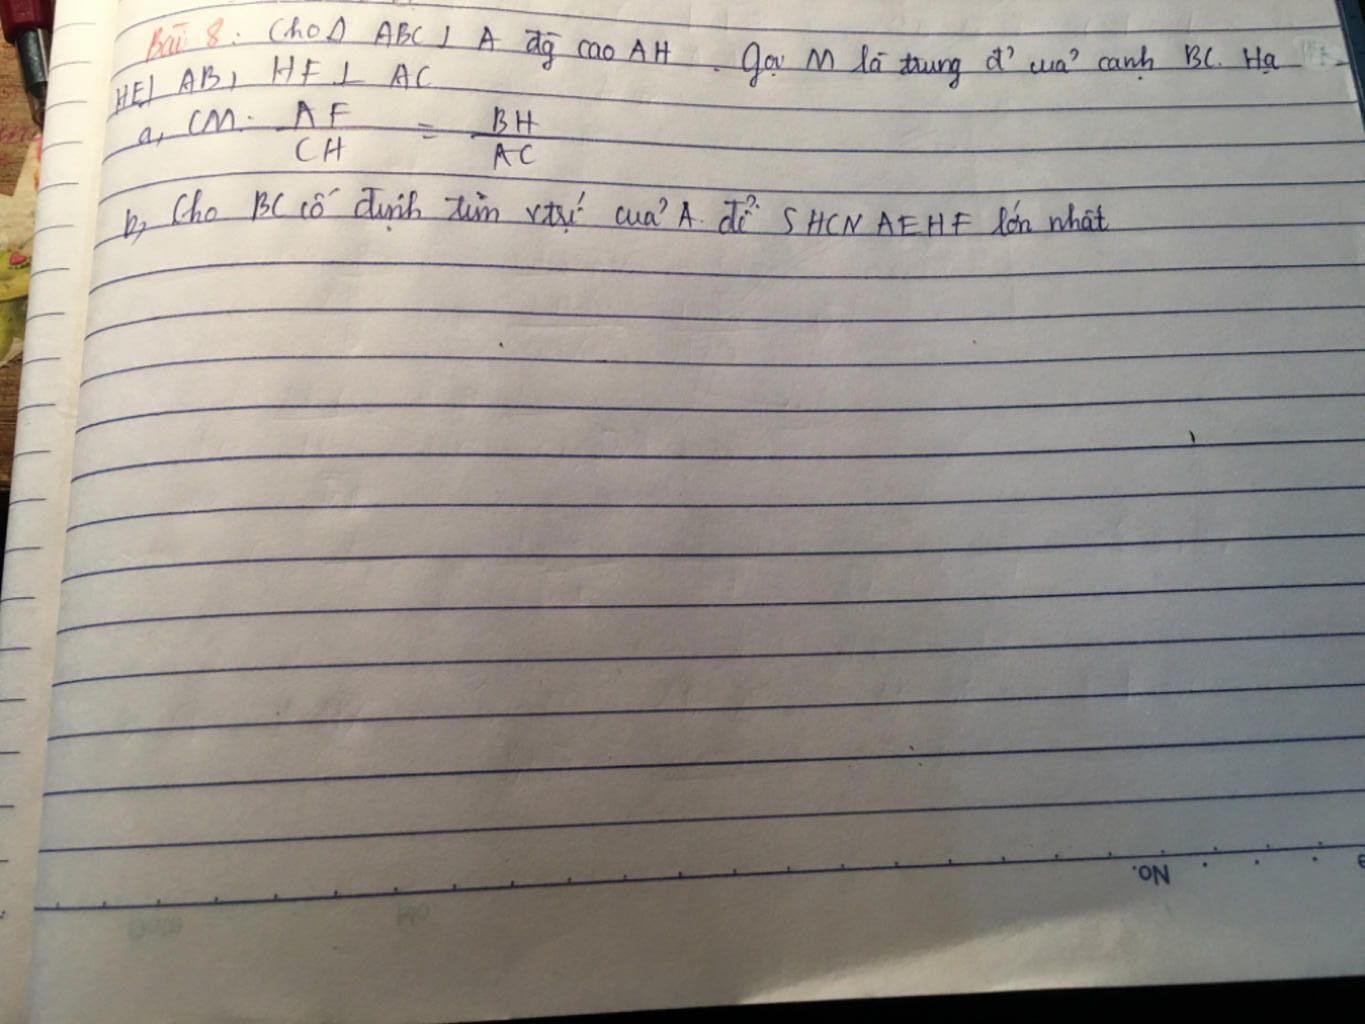 Bài 8: Cho Δ ABC ⊥ A đg cao AH. Gọi M là trung đ' của cạnh BC. Hạ
HE⊥ AB, HF⊥ AC
a, CM: AF/CH = BH/AC
b, Cho BC cố định tìm vtrí của A để SHCN AEHF lớn nhất
No.
Date No